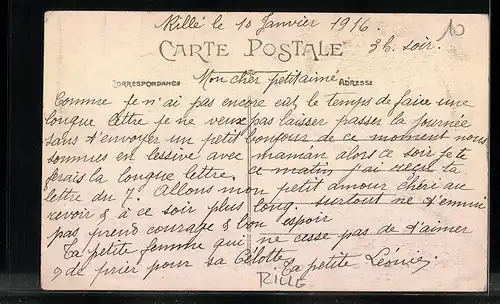 Rillé le 10 Janvier 1916.
10
CARTE POSTALE
3h. soir.
Mon cher petit aimé
CORRESPONDANCE
ADRESSE
Comme je n'ai pas encore eut le temps de faire une
longue lettre je ne veux pas laisser passer la journée
sans t'envoyer un petit bonjour de ce moment nous
sommes en lessive avec maman alors ce soir je te
ferais la longue lettre. ce matin j'ai reçu ta
lettre du 7. Allons mon petit amour chéri au
revoir & à ce soir plus long. surtout ne t'ennui
pas prend courage & bon espoir
Ta petite femme qui ne cesse pas de t'aimer
& de prier pour sa
Ta petite Léonie.
RILLE